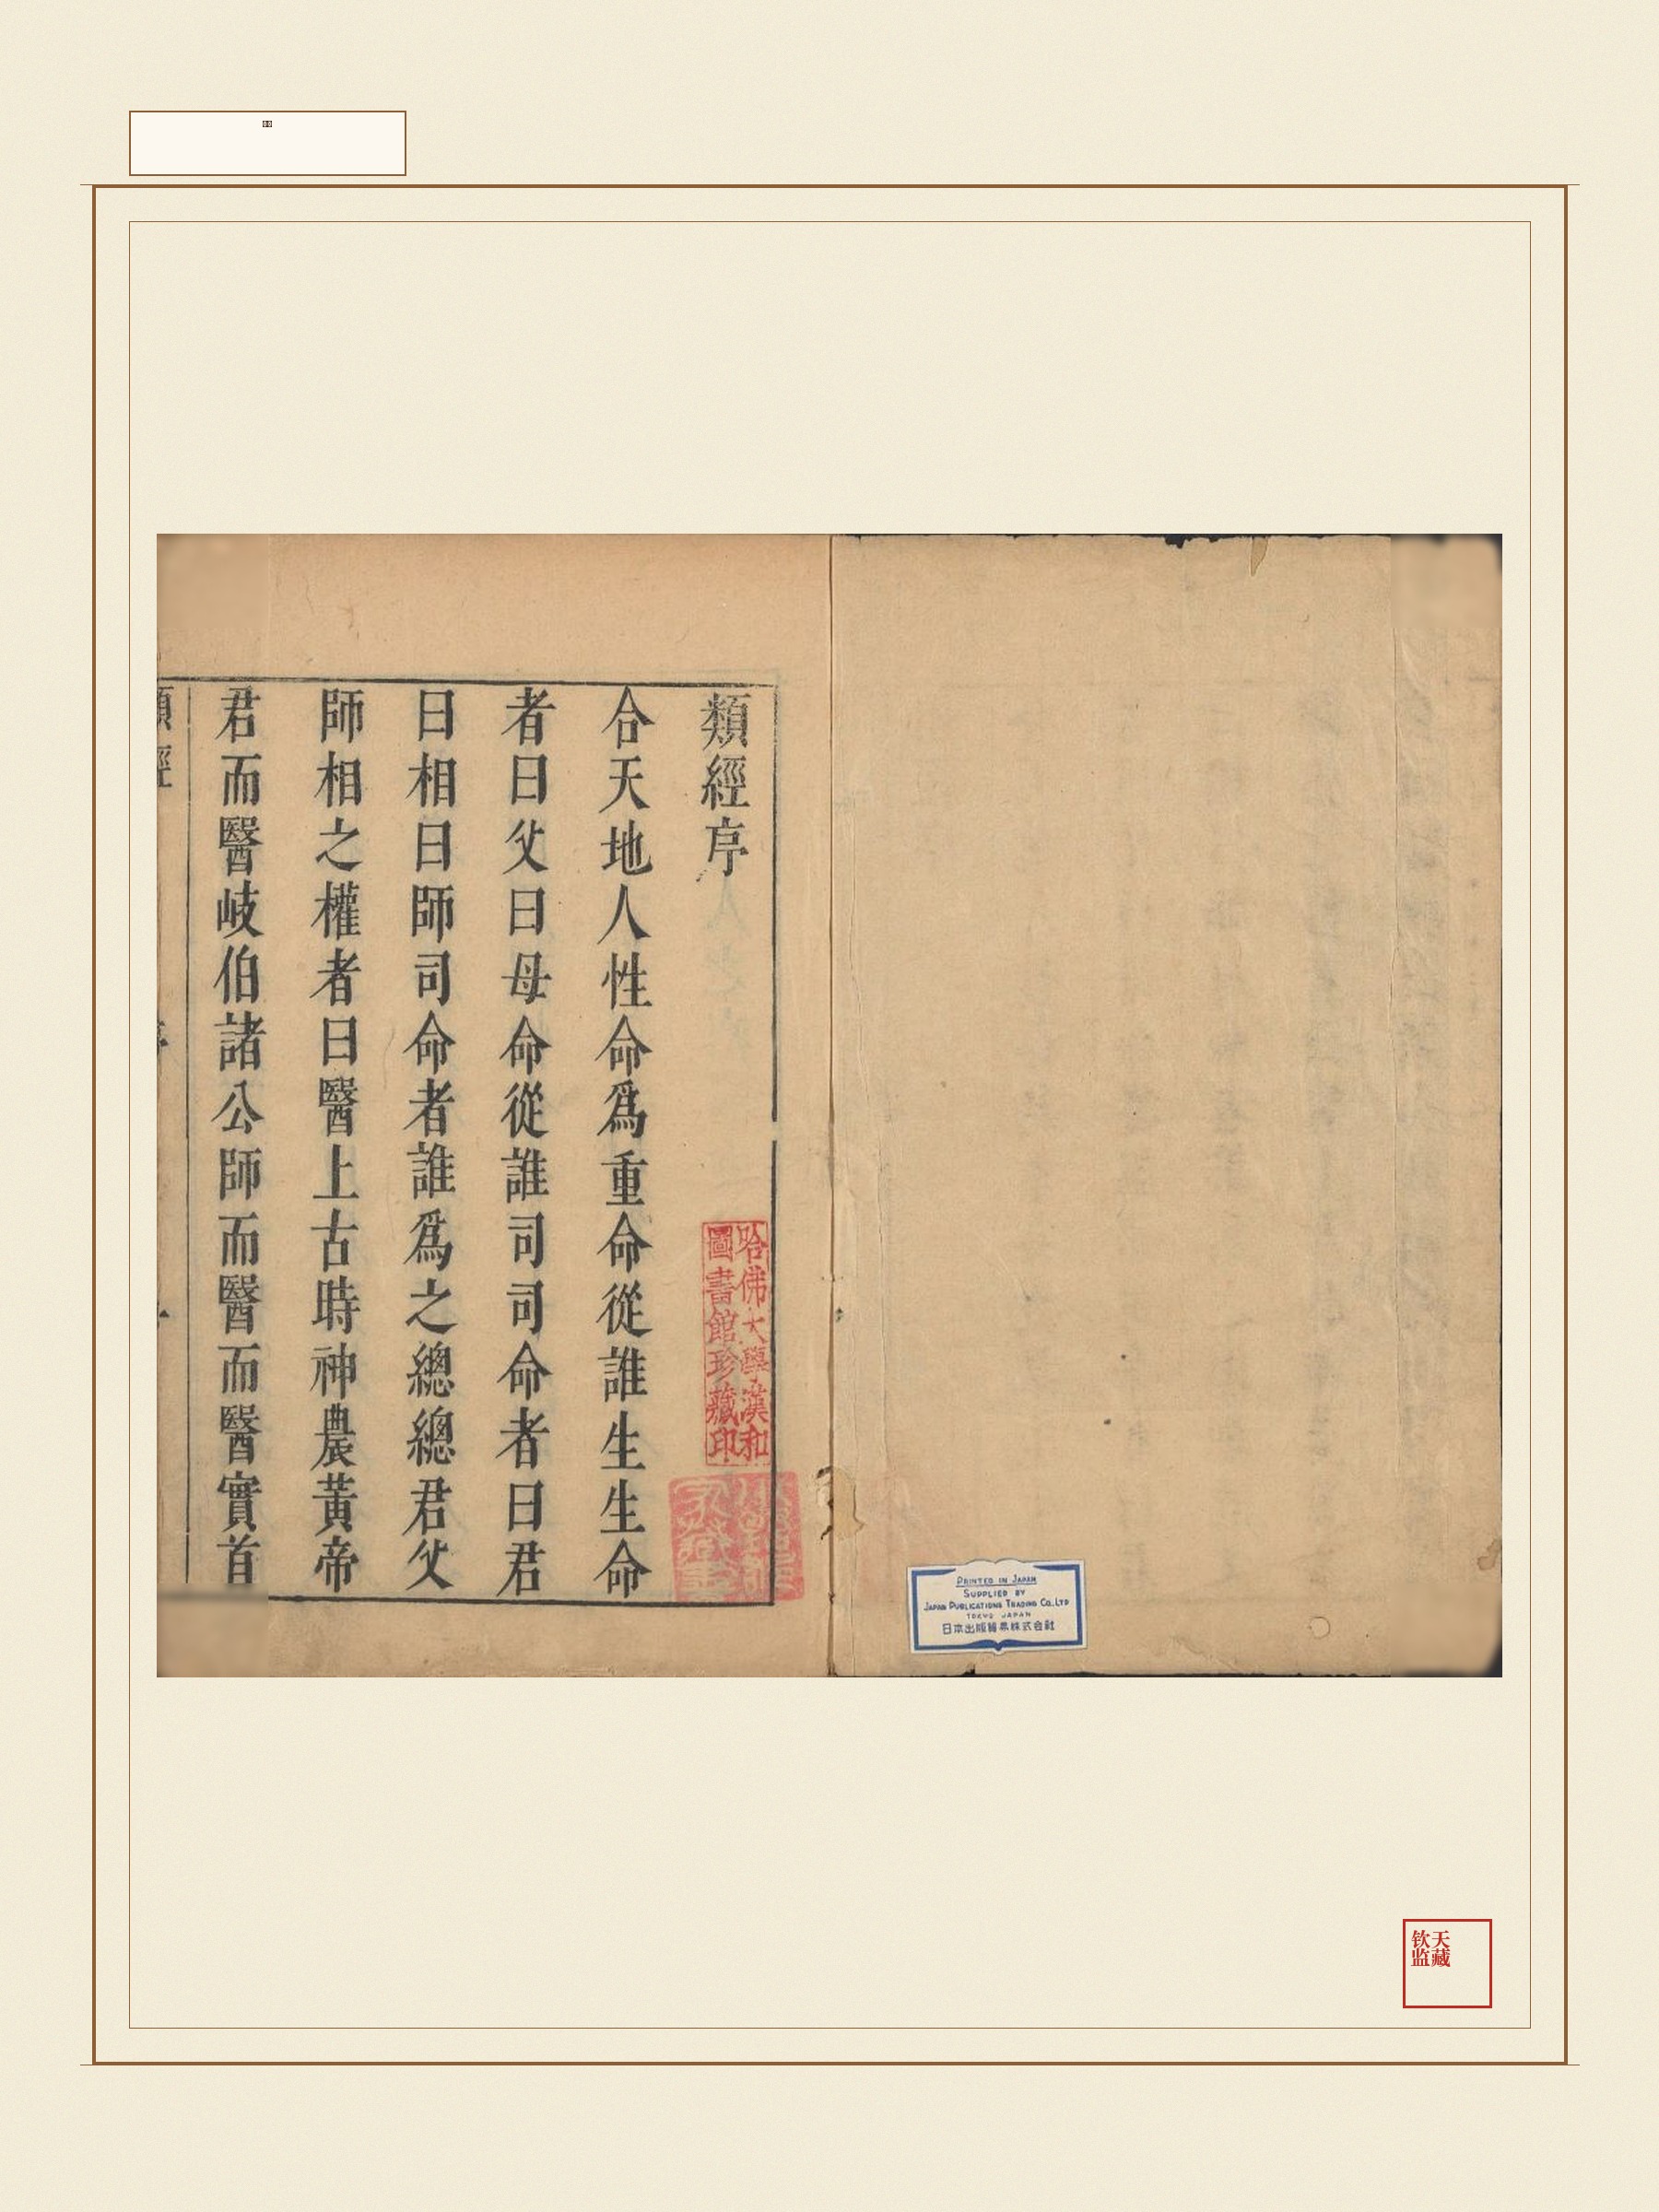 類經序
合天地人性命爲重命從誰生生命
者曰父曰母命從誰司司命者曰君
曰相曰師司命者誰爲之總總君父
師相之權者曰醫上古時神農黃帝
君而醫岐伯諸公師而醫而醫實首
類經
哈佛大學漢和
圖書館珍藏印
PRINTED IN JAPAN
SUPPLIED BY
JAPAN PUBLICATIONS TRADING CO., LTD
TOKYO JAPAN
日本出版貿易株式会社
天藏
钦监